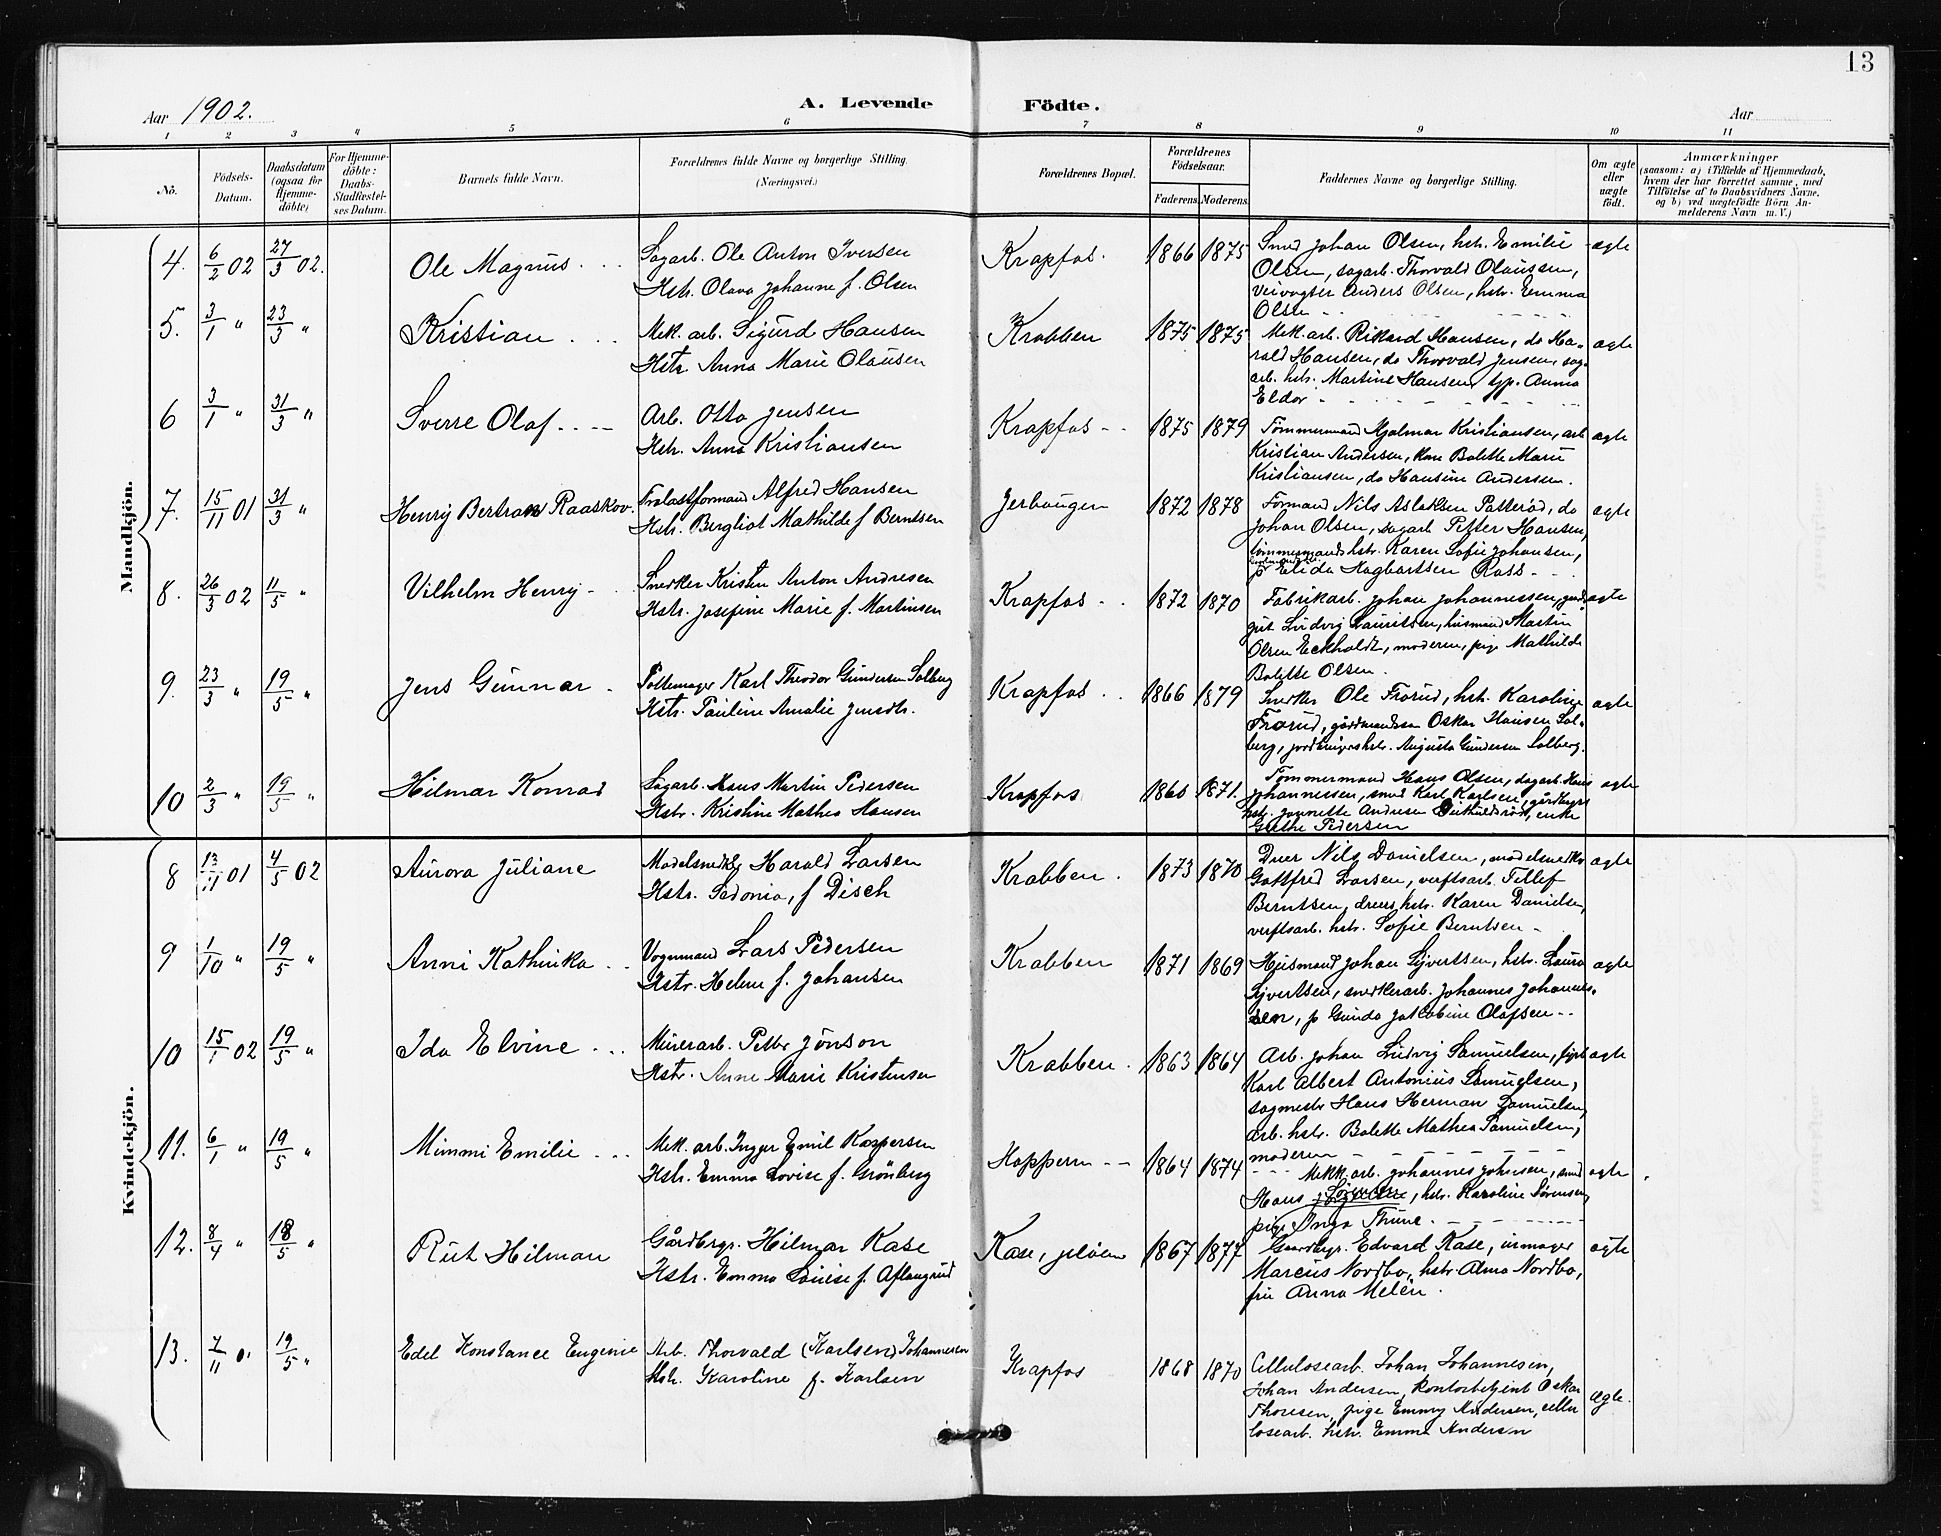 13
Aar 1902.
A. Levende Födte.
Aar
1 2 3 4 5 6 7 8 9 10 11
Nö.
Födsels-Datum.
Daabsdatum (ogsaa for Hjemme-döbte)
For Hjemme-döbte: Daabs-Stadfæstel-ses Datum.
Barnets fulde Navn.
Forældrenes fulde Navne og borgerlige Stilling.
(Næringsvei.)
Forældrenes Bopæl.
Forældrenes Födselsaar.
Faderens. Moderens.
Faddernes Navne og borgerlige Stilling.
Om ægte eller uægte födt.
Anmærkninger
(saasom: a) i Tilfælde af Hjemmedaab, hvem der har forrettet samme, med Tilföielse af to Daabsvidners Navne. og b) ved uægtefödte Börn An-melderens Navn m. V.)
Mandkjön.
4. 6/2 02 27/3 02. Ole Magnus
Sagarb. Ole Anton Iversen
Hstr. Olava Johanne f. Olsen
Krapfos. 1866 1875
Smed Johan Olsen, hstr. Emilie
Olsen, sagarb. Thorvald Olaussen,
Veivogter Anders Olsen, hstr. Emma
Olsen
ægte
5. 3/1 " 23/3 " Kristian
Mek. arb. Sigurd Hansen
Hstr. Anna Marie Olausen
Krabben 1875 1875
Mek. arb. Rikard Hansen, do Ha-
rald Hansen, do Thorvald Jensen, sag-
arb. hstr. Martine Hansen, Anna
Eldor
ægte
6 3/1 " 31/3 " Sverre Olaf
Arb. Otto Jensen
Hstr. Anna Kristiansen
Krapfos 1875 1879
Tömmermand Hjalmar Kristiansen, arb
Kristian Andersen, kone Bolette Marie
Kristiansen, do Hansine Andersen.
ægte
7. 15/11 01 31/3 " Henry Bertran Raaskov.
Trælastformand Alfred Hansen
Hstr. Bergliot Mathilde f Berntsen
Jerbaugen 1872 1878
Formand Nils Aslaksen Patterød, do
Johan Olsen, sagarb Petter Hansen,
tömmermands hstr. Karen Sofie Johansen,
p Elida Hagbartsen Ross
ægte
8. 26/3 02 11/5 " Vilhelm Henry
Snedker Kristen Anton Andresen
Hstr. Josefine Marie f. Martinsen
Krapfos 1872 1870
Fabrikarb. Johan Johannessen,
gut Ludvig Lauritsen, husmand Martin
Olsen Eckholdt, moderen, pige Mathilde
Bolette Olsen.
ægte
9. 23/3 " 19/5 " Jens Gunnar
Pottemager Karl Theodor Gundersen Solberg
Hstr. Pauline Amalie Jensdtr.
Krapfos 1866 1879
Snedker Ole Frorud, hstr. Karoline
Frorud, gårdmandssøn Oskar Hansen Sol-
berg, hstr. Augusta Gundersen Solberg.
ægte
10 2/3 " 19/5 " Hilmar Konrad
Sagarb. Hans Martin Pedersen
Hstr. Kristine Mathea Hansen
Krapfos 1871.
Tömmermand Hans Olsen, sagarb. Hans
Johannessen, smed Karl Karlsen, gårdbrgrs
hstr. Andersen, enke
Grethe Pedersen
ægte
Kvindekjön.
8 13/11 01 4/5 02 Aurora Juliane
Modelsnedker Harald Larsen
Hstr. Sedonia, f Disch
Krabben. 1873 1870
Dreier Nils Danielsen, modelsnedker
Gottfred Larsen, verftsarb. Tellef
Berntsen, dreiers hstr. Karen Danielsen,
verftsarb. hstr. Sofie Berntsen
ægte
9 1/10 " 19/5 " Anni Kathinka
Vognmand Lars Pedersen
Hstr. Helene f. Johansen
Krabben 1871 1869
Husmand Johan Syvertsen, hstr. Laura
Syvertsen, snedkerarb. Johannes Johannes-
sen, p Gunda Jakobine Olafsen
ægte
10 15/1 02 19/5 " Ida Elvine
Murerarb. Petter Jönson
Hstr. Anne Marie Kristensen
Krabben. 1863 1864
Arb. Johan Ludvig Samuelsen,
Karl Albert Antonius Samuelsen,
sagmestr Hans Herman Samuelsen,
arb. hstr. Bolette Mathea Samuelsen,
moderen
ægte
11. 6/1 " 19/5 " Mimmi Emilie
Mek. arb. Ingvr Emil Kaspersen
Hstr. Emma Lovise f. Grönberg
Hoppern 1864 1874
Mekk. arb. Johannes Johnsen, smed
Hans Sörensen, hstr. Karoline Sørensen,
pige Inga Thune.
ægte
12. 8/4 " 18/5 " Rut Hilman
Gårdbrgr. Hilmar Kase
Hstr. Emma Louise f. Aslangrud
Kase, Jeløen 1867 1877
Gaardbrgr. Edvard Kase, urmager
Marcus Nordbo, hstr. Alma Nordbo,
fru Anna Melén.
ægte
13. 7/11 01 19/5 " Edel Konstance Eugenie
Arb. Thorvald (Karlsen) Johannesen
Hstr. Karoline f. Karlsen
Krapfos 1868 1870
Cellulosearb. Johan Johannesen,
Johan Andersen, kontorbetjent Oskar
Thoresen, pige Emmy Andersen, cellu
losearb. hstr. Emma Andersen
ægte.